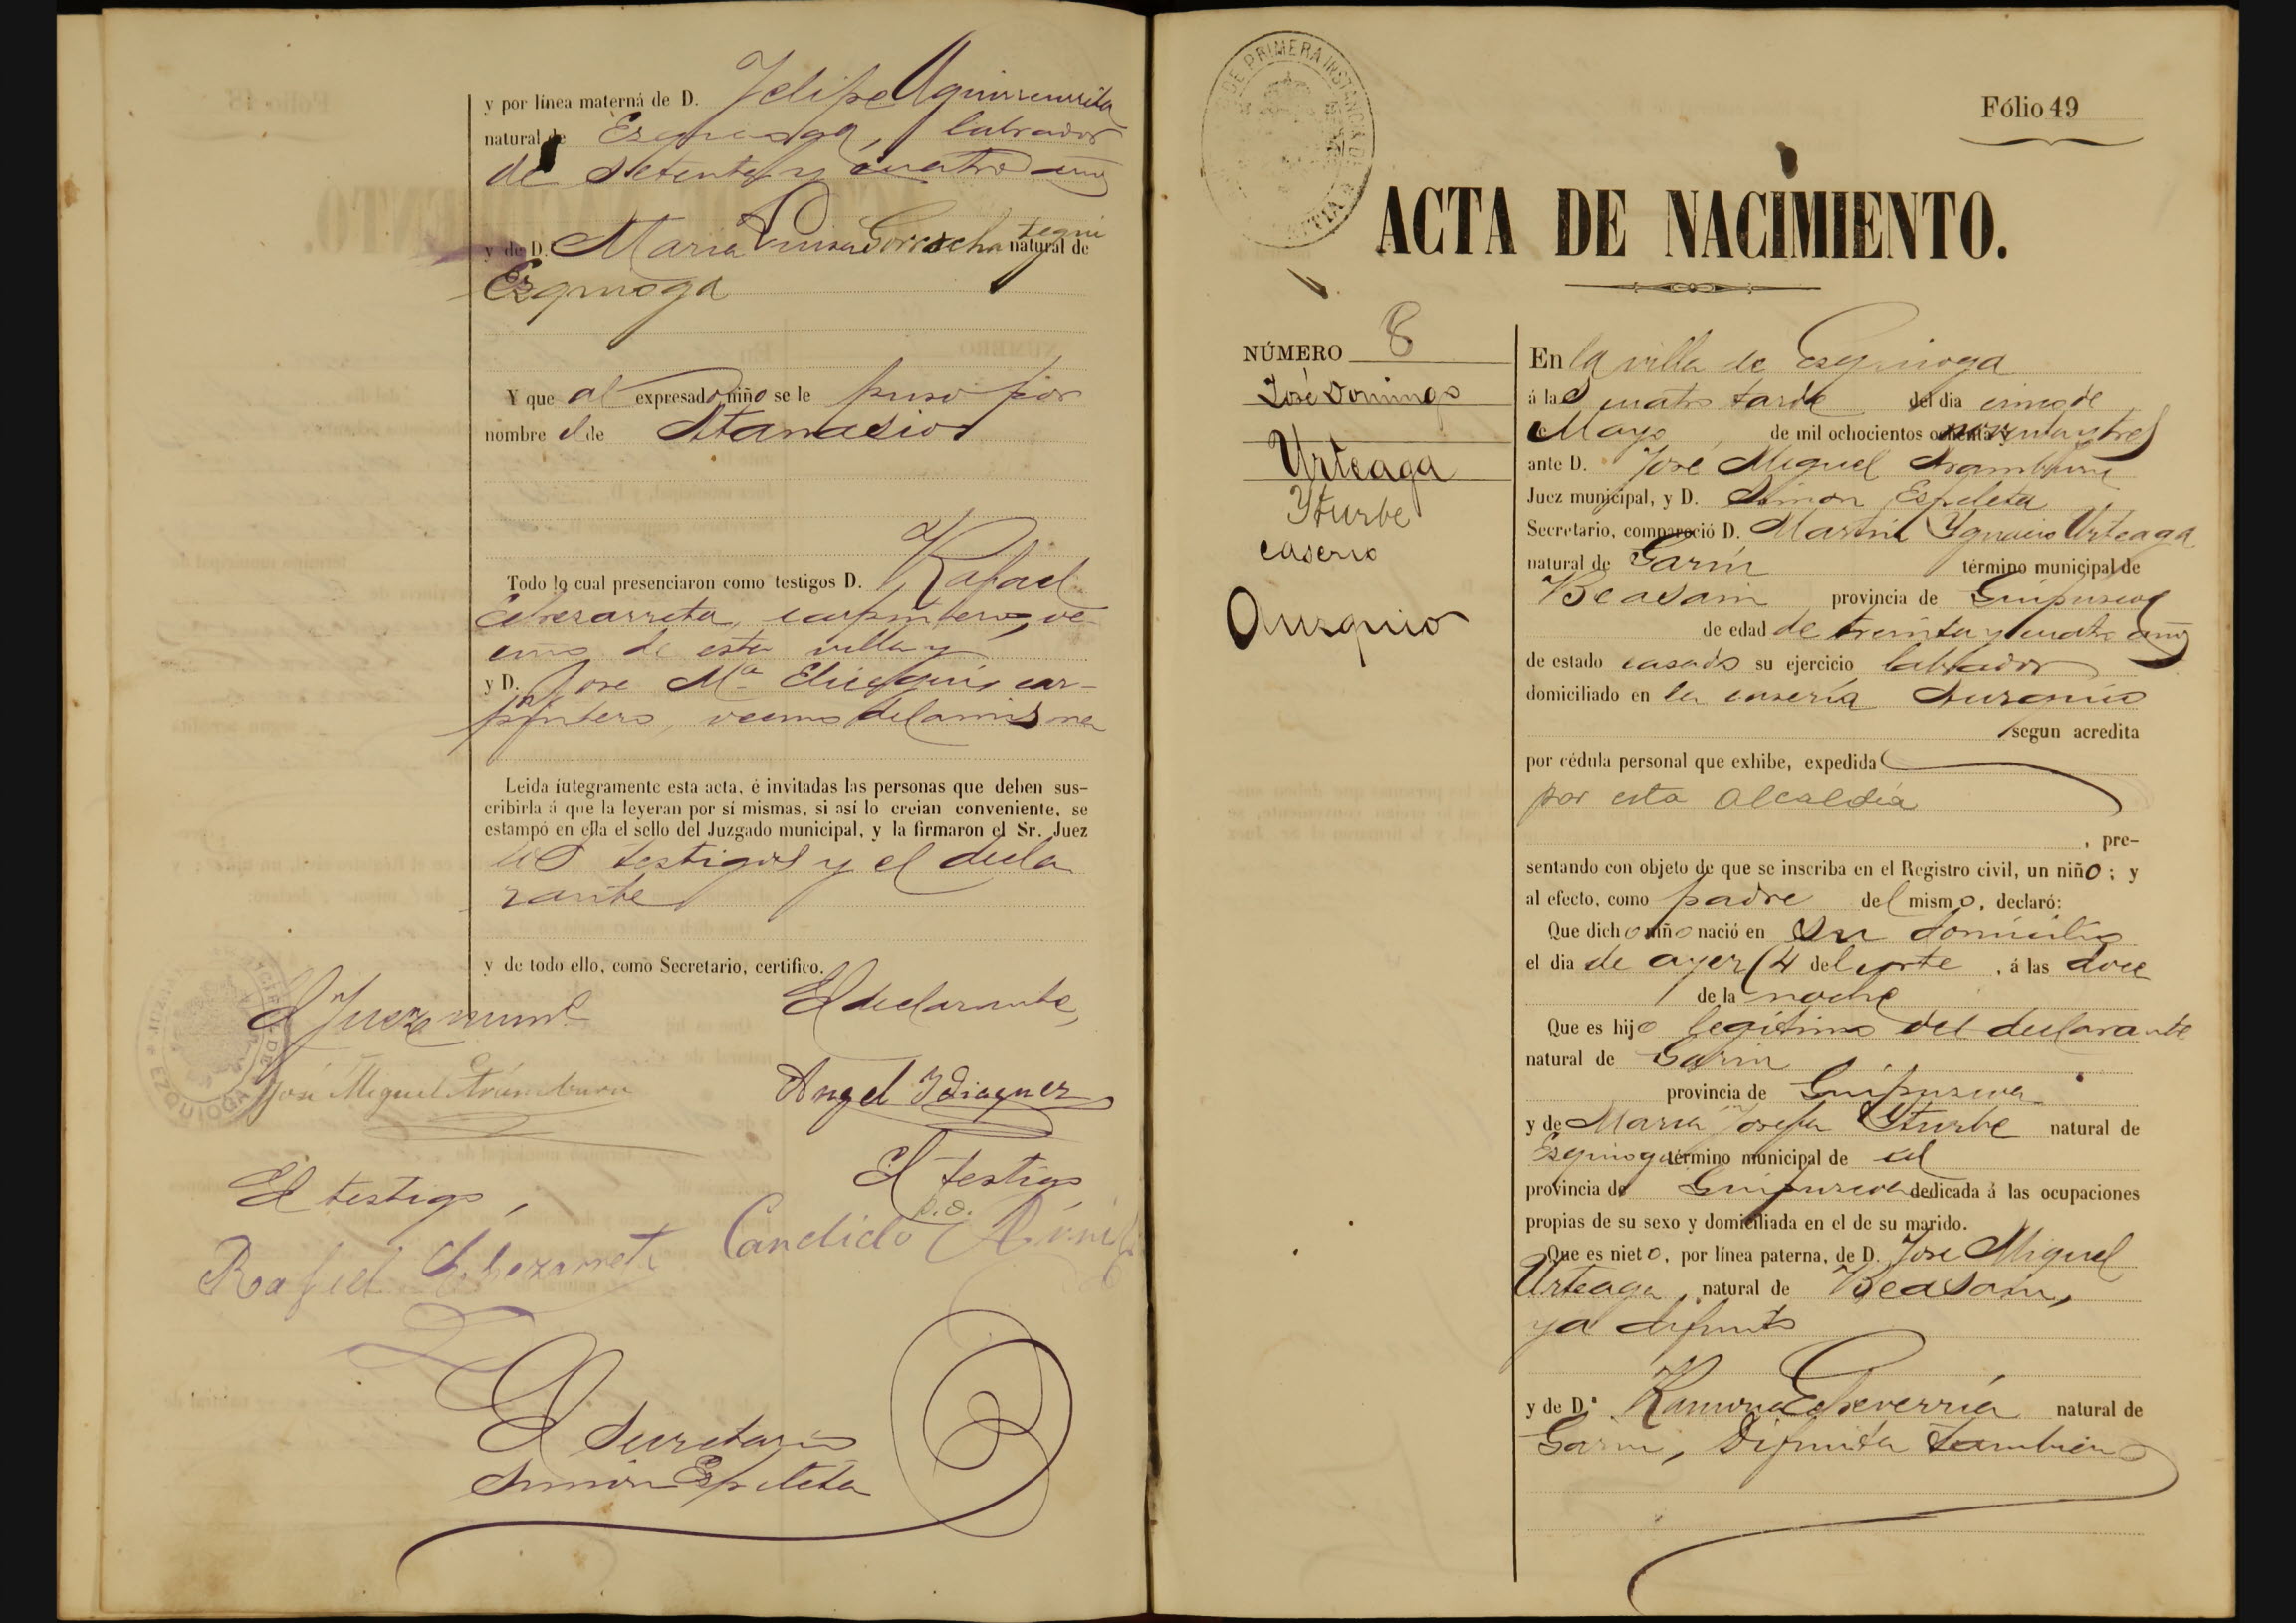 y por línea materna de D. Felipe Aguirreurreta
natural de Ezquioga, labrador
de setenta y cuatro años
y de D. Maria Luisa Gorrochategui natural de
Ezquioga
Y que al expresado niño se le puso por
nombre el de Atanasio
Todo lo cual presenciaron como testigos D. Rafael
Echezarreta, carpintero, ve-
cino de esta villa y
y D. Jose Mª car-
pintero, vecino de la misma
Leida íntegramente esta acta, é invitadas las personas que deben sus-
cribirla á que la leyeran por sí mismas, si así lo creian conveniente, se
estampó en ella el sello del Juzgado municipal, y la firmaron el Sr. Juez
los testigos y el decla
rante
y de todo ello, como Secretario, certifico.
El Juez munl
El declarante,
José Miguel Aramburu
Angel Ydiaquez
El testigo,
El testigo
p.o.
Rafael Echezarreta
Candido
El Secretario
Simón Espeleta
EZQUIOGA
DE PRIMERA INSTANCIA DE
Fólio 49
ACTA DE NACIMIENTO.
NÚMERO 8
José Domingo
Urteaga
Yturbe
caserio
Ausquio
En la villa de Esquioga
á las cuatro tarde del dia cinco de
Mayo de mil ochocientos ochenta y noventa y tres
ante D. José Miguel Aramburu
Juez municipal, y D. Simon Espeleta
Secretario, compareció D. Martin Ygnacio Urteaga
natural de Garin término municipal de
Beasain provincia de Guipuscoa
de edad de treinta y cuatro años
de estado casado su ejercicio labrador
domiciliado en la casería Ausquio
segun acredita
por cédula personal que exhibe, expedida
por esta Alcaldía
, pre-
sentando con objeto de que se inscriba en el Registro civil, un niño; y
al efecto, como padre del mismo, declaró:
Que dicho niño nació en su domicilio
el dia de ayer (4 del corte, á las doce
de la noche
Que es hijo legítimo del declarante
natural de Garin
provincia de Guipuscoa
y de Maria Josefa Yturbe natural de
Esquioga término municipal de id
provincia de Guipuscoa dedicada á las ocupaciones
propias de su sexo y domiciliada en el de su marido.
Que es nieto, por línea paterna, de D. Jose Miguel
Urteaga, natural de Beasain,
ya difunto
y de D.ª Ramona Echeverría natural de
Garin, difunta tambien